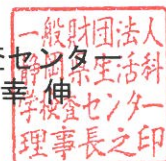 センター
幸 伸
一般財団法人
静岡県生活科
学検査センター
理事長之印